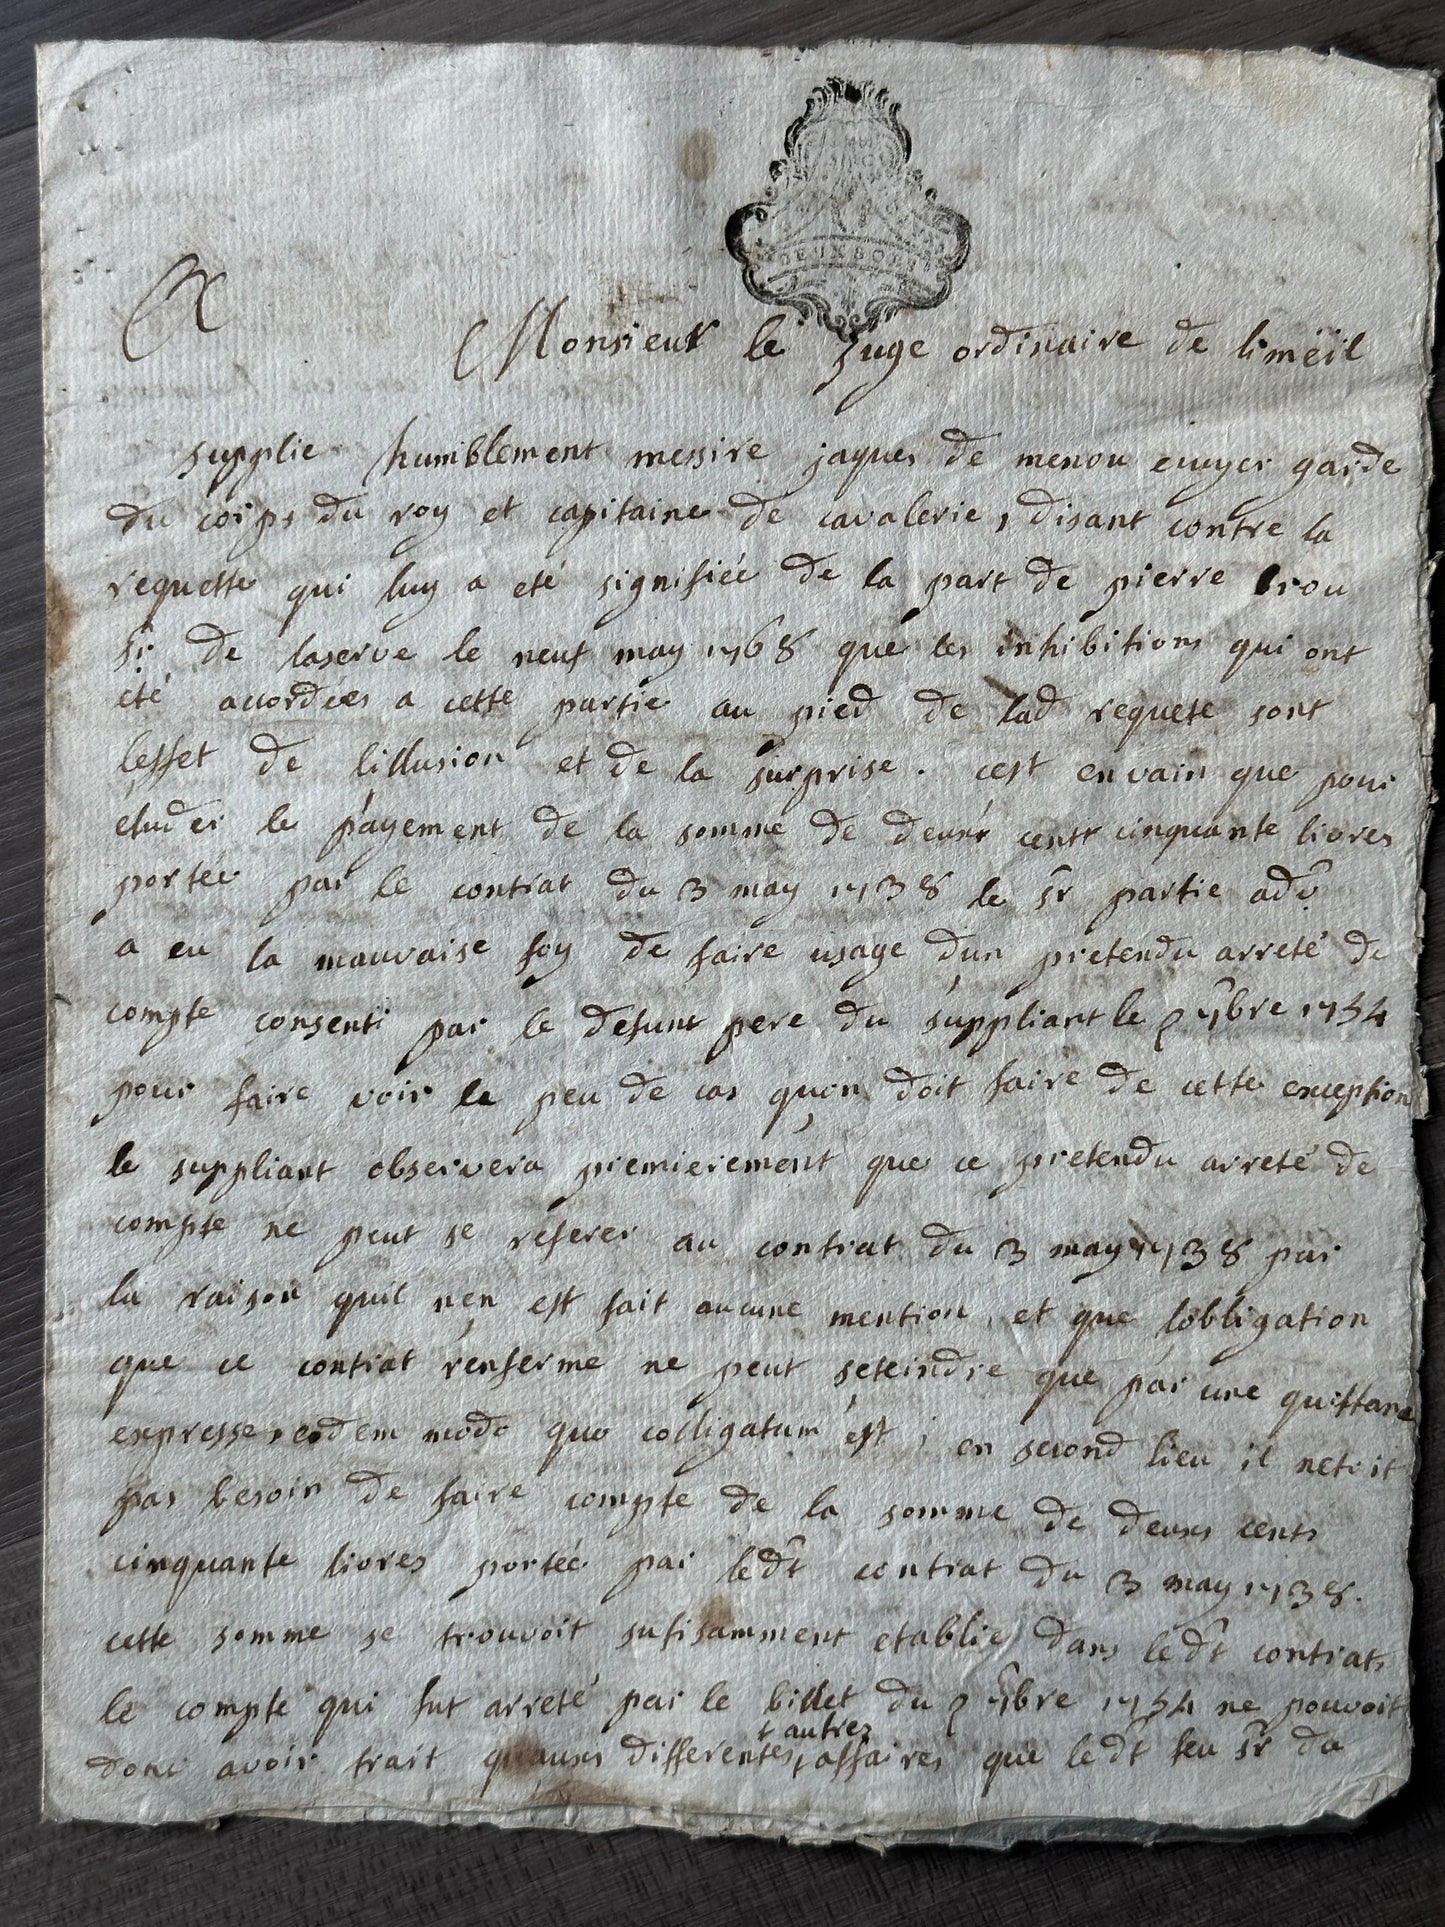 DEUX SOLS
A
Monsieur le juge ordinaire de limëïl
supplie humblement messire jaques de menou ecuyer garde
du corps du roy et capitaine de cavalerie, disant contre la
requette qui luy a eté signifiée de la part de pierre
sr. de laserve le neuf may 1768 que les inhibitions qui ont
eté accordées a cette partie au pied de lad requete sont
leffet de lillusion et de la surprise. cest en vain que pour
eluder le payement de la somme de deux cents cinquante livres
portée par le contrat du 3 may 1738 le sr partie adv
a eu la mauvaise foy de faire usage dun pretendu arreté de
compte consenti par le defunt pere du suppliant le 2 9bre 1754
pour faire voir le peu de cas quon doit faire de cette exception
le suppliant observera premierement que ce pretendu arreté de
compte ne peut se referer au contrat du 3 may 1738 par
la raison quil nen est fait aucune mention, et que lobligation
que ce contrat renferme ne peut seteindre que par une quittance
expresse, eodem modo quo colligatum est; en second lieu il netoit
pas besoin de faire compte de la somme de deux cents
cinquante livres portée par ledt contrat du 3 may 1738.
cette somme se trouvoit sufisamment etablie dans ledt contrats
le compte qui fut arreté par le billet du 2 9bre 1754 ne pouvoit
donc avoir trait quaux differentes autres affaires que ledt feu sr de